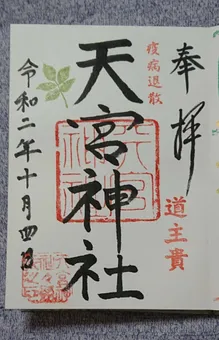 奉拝
道主貴
疫病退散
天宮神社
令和二年十月四日